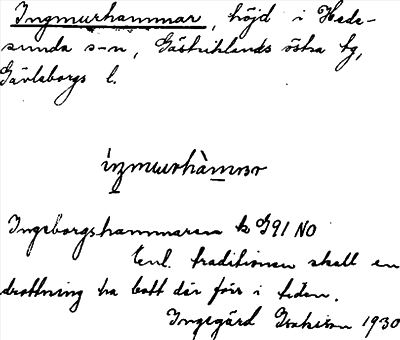 Ingmurhammar, höjd i Hede-
sunda s-n, Gästriklands östra tg,
Gävleborgs l.
ìŋmurhàmar
Ingeborgshammaren k G91 NO
Enl. traditionen skall en
drottning ha bott där förr i tiden.
Ingegärd Isaksson 1930